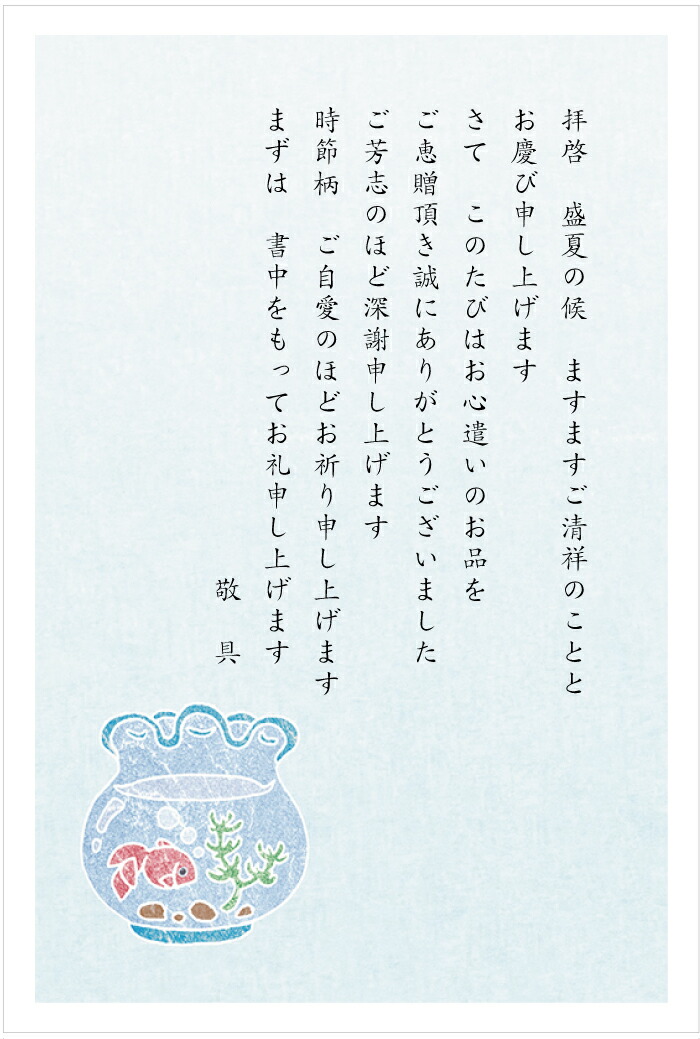 拝啓　盛夏の候　ますますご清祥のことと
お慶び申し上げます
さて　このたびはお心遣いのお品を
ご恵贈頂き誠にありがとうございました
ご芳志のほど深謝申し上げます
時節柄　ご自愛のほどお祈り申し上げます
まずは　書中をもってお礼申し上げます
敬　具